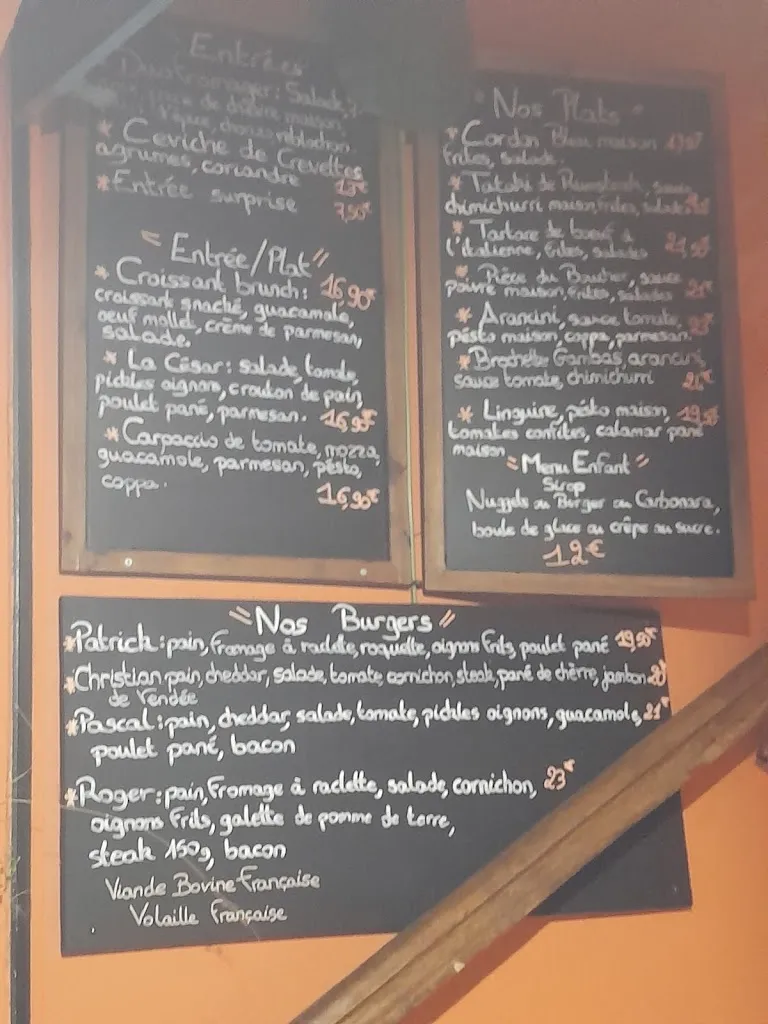 Entrées
Salade,
de chèvre maison
* Ceviche de Crevettes
agrumes, coriandre 13€
* Entrée surprise 7,50€
"Entrée/Plat"
* Croissant brunch: 16,90€
croissant snacké, guacamole,
oeuf mollet, crème de parmesan,
salade.
* La César: salade, tomate,
pickles oignon, crouton de pain,
poulet pané, parmesan. 16,90€
* Carpaccio de tomate, mozza,
guacamole, parmesan, pesto,
coppa.
16,90€
"Nos Plats"
* Cordon Bleu maison
frites, salade.
* Tataki de Rumsteak, sauce
chimichurri maison, frites, salades
* Tartare de boeuf à
l'italienne, frites, salades
* Pièce du Boucher, sauce
poivre maison, frites, salades
* Arancini, sauce tomate,
pésto maison, coppa, parmesan.
* Brochette Gambas, arancini,
sauce tomate, chimichurri
* Linguine, pésto maison,
tomates confites, calamar pané
maison
"Menu Enfant"
Sirop
Nuggets ou Burger ou Carbonara,
boule de glace ou crêpe au sucre.
12€
"Nos Burgers"
* Patrick: pain, fromage à raclette, roquette, oignons frits, poulet pané 19,50€
* Christian: pain, cheddar, salade, tomate, cornichon, steak, pané de chèvre, jambon
de Vendée
* Pascal: pain, cheddar, salade, tomate, pickles oignons, guacamole, 21€
poulet pané, bacon
* Roger: pain, fromage à raclette, salade, cornichon, 23€
oignons frits, galette de pomme de terre,
steak 150g, bacon
Viande Bovine Française
Volaille Française